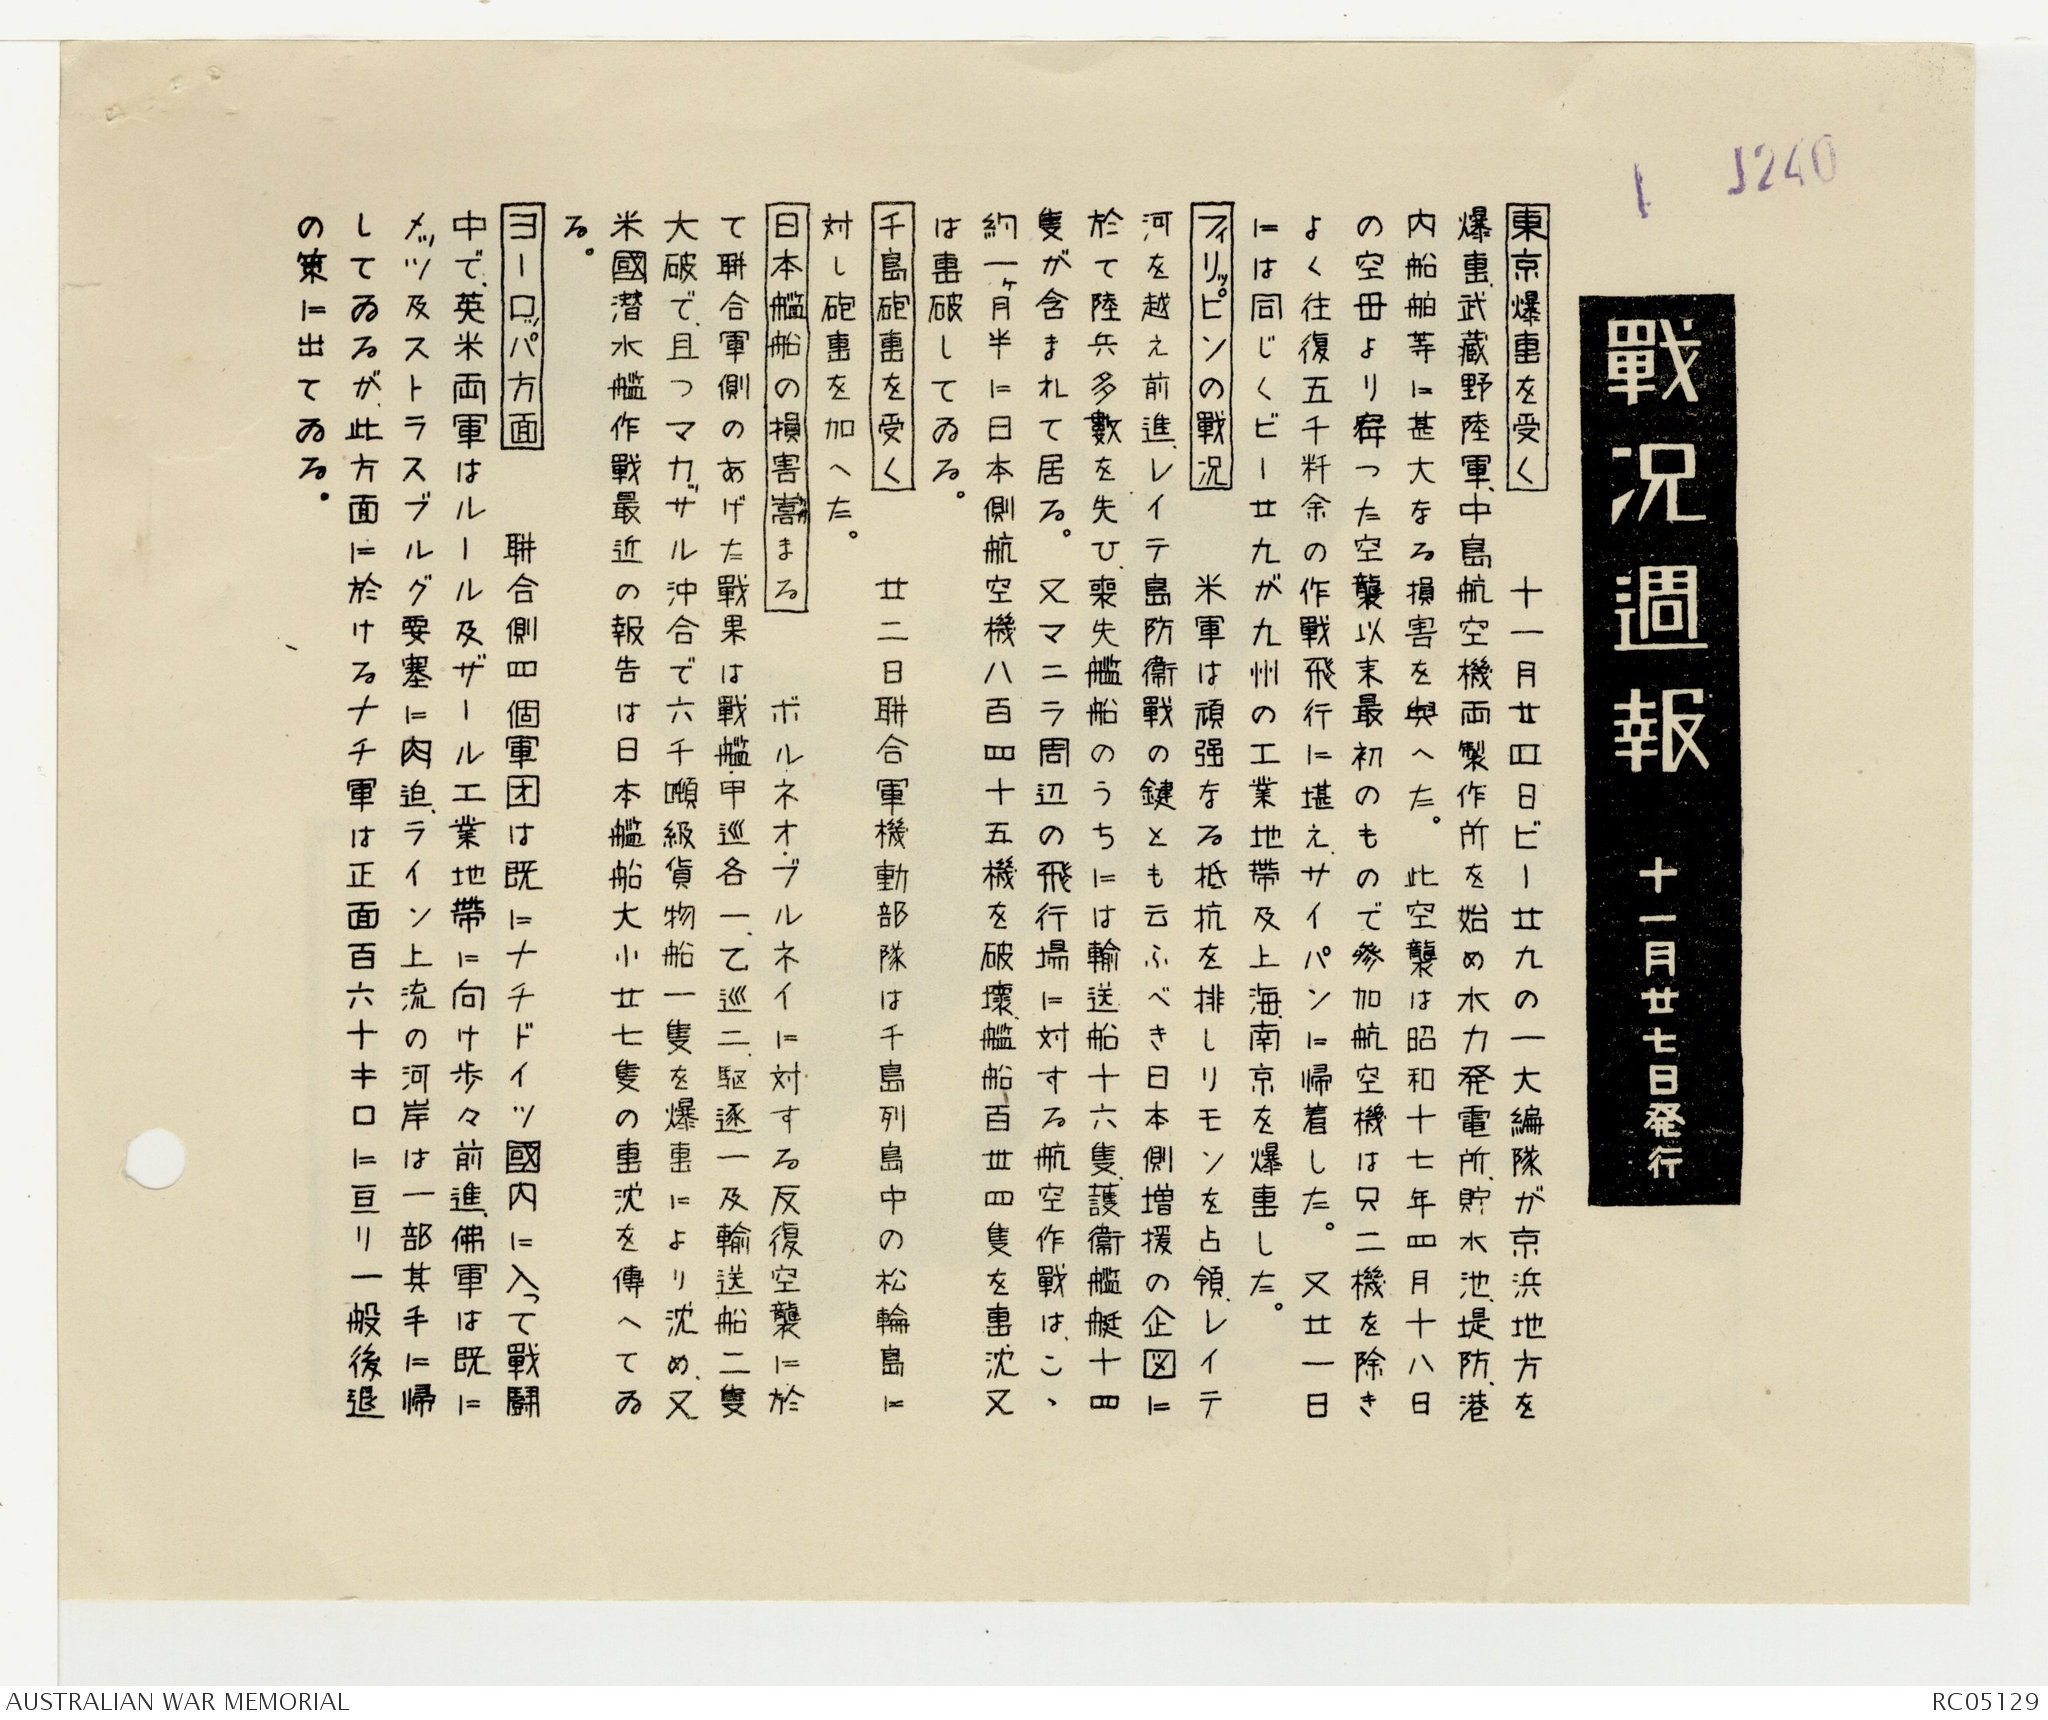 J240
1
戰況週報 十一月廿七日発行
東京爆撃を受く 十一月廿四日ビー廿九の一大編隊が京浜地方を
爆撃、武蔵野陸軍、中島航空機両製作所を始め水力発電所、貯水池、堤防、港
内船舶等に甚大なる損害を與へた。此空襲は昭和十七年四月十八日
の空母より行つた空襲以来最初のもので参加航空機は只二機を除き
よく往復五千粁余の作戰飛行に堪え、サイパンに帰着した。又廿一日
には同じくビー廿九が九州の工業地帯及上海、南京を爆撃した。
フィリッピンの戰況 米軍は頑强なる抵抗を排しリモンを占領、レイテ
河を越え前進、レイテ島防衞戰の鍵とも云ふべき日本側増援の企図に
於て陸兵多數を失ひ、喪失艦船のうちには輸送船十六隻、護衞艦艇十四
隻が含まれて居る。又マニラ周辺の飛行場に対する航空作戰は、こゝ
約一ヶ月半に日本側航空機八百四十五機を破壊、艦船百卅四隻を撃沈又
は撃破してゐる。
千島砲撃を受く 廿二日聯合軍機動部隊は千島列島中の松輪島に
対し砲撃を加へた。
日本艦船の損害嵩まる ボルネオ・ブルネイに対する反復空襲に於
て聯合軍側のあげた戰果は戰艦・甲巡各一、乙巡二、駆逐一及輸送船二隻
大破で、且つマカッサル沖合で六千噸級貨物船一隻を爆撃により沈め、又
米國潜水艦作戰最近の報告は日本艦船大小廿七隻の撃沈を傳へてゐ
る。
ヨーロッパ方面 聯合側四個軍団は既にナチドイツ國内に入って戰鬪
中で、英米両軍はルール及ザール工業地帶に向け歩々前進、佛軍は既に
メッツ及ストラスブルグ要塞に肉迫、ライン上流の河岸は一部其手に帰
してゐるが、此方面に於けるナチ軍は正面百六十キロに亘リ一般後退
の策に出てゐる。
AUSTRALIAN WAR MEMORIAL
RC05129